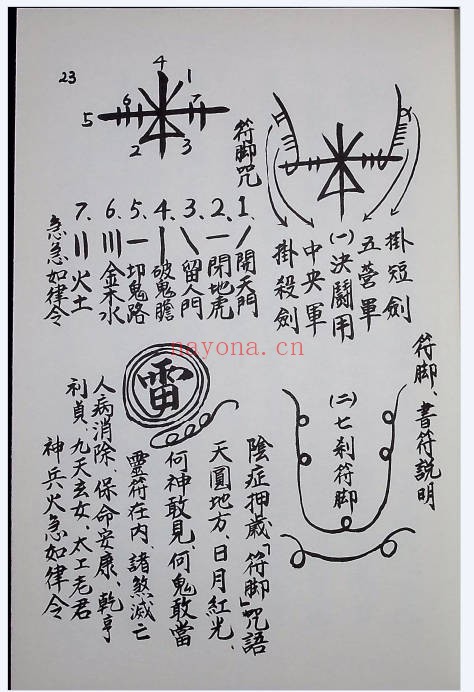 23
符脚、書符說明
掛短劍
五營軍
(一)決鬪用
中央軍
掛殺劍
4
1
7
6
5
2
3
符脚咒
1. 開天門
2. 閉地虎
3. 留人門
4. 破鬼膽
5. 鬼路
6. 金木水
7. 火土
急急如律令
nayona.cn
(二)七剎符脚
雷
陰症押歲「符脚」咒語
天圓地方、日月紅光、
何神敢見、何鬼敢當
靈符在内、諸煞滅亡
人病消除、保命安康、乾亨
利貞、九天玄女、太上老君
神兵火急如律令